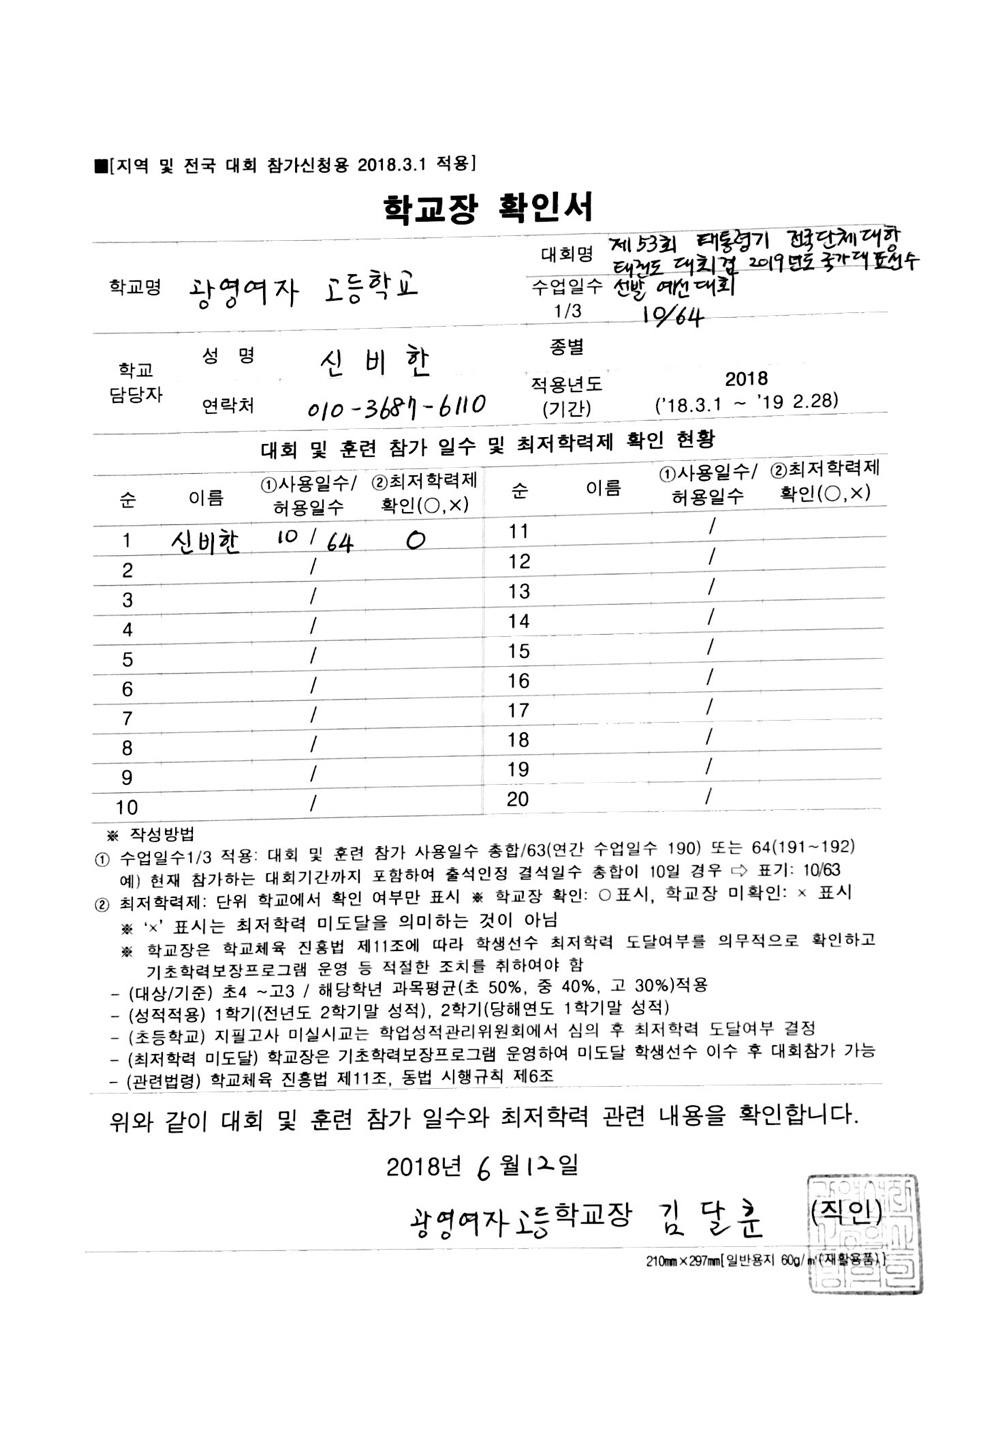 ■[지역 및 전국 대회 참가신청용 2018.3.1 적용]
학교장 확인서
학교명 광영여자 고등학교
대회명 제53회 대통령기 전국단체대항
태권도 대회 겸 2019년도 국가대표선수
선발 예선대회
수업일수
1/3 10/64
학교
담당자
성 명 신비한
연락처 010-3687-6110
종별
적용년도
(기간)
2018
('18.3.1 ~ '19 2.28)
대회 및 훈련 참가 일수 및 최저학력제 확인 현황
순 이름 ①사용일수/허용일수 ②최저학력제 확인(○,×) 순 이름 ①사용일수/허용일수 ②최저학력제 확인(○,×)
1 신비한 10 / 64 O 11 /
2 / 12 /
3 / 13 /
4 / 14 /
5 / 15 /
6 / 16 /
7 / 17 /
8 / 18 /
9 / 19 /
10 / 20 /
※ 작성방법
① 수업일수1/3 적용: 대회 및 훈련 참가 사용일수 총합/63(연간 수업일수 190) 또는 64(191~192)
예) 현재 참가하는 대회기간까지 포함하여 출석인정 결석일수 총합이 10일 경우 ⇨ 표기: 10/63
② 최저학력제: 단위 학교에서 확인 여부만 표시 ※ 학교장 확인: ○표시, 학교장 미확인: × 표시
※ '×' 표시는 최저학력 미도달을 의미하는 것이 아님
※ 학교장은 학교체육 진흥법 제11조에 따라 학생선수 최저학력 도달여부를 의무적으로 확인하고
기초학력보장프로그램 운영 등 적절한 조치를 취하여야 함
- (대상/기준) 초4 ~고3 / 해당학년 과목평균(초 50%, 중 40%, 고 30%)적용
- (성적적용) 1학기(전년도 2학기말 성적), 2학기(당해연도 1학기말 성적)
- (초등학교) 지필고사 미실시교는 학업성적관리위원회에서 심의 후 최저학력 도달여부 결정
- (최저학력 미도달) 학교장은 기초학력보장프로그램 운영하여 미도달 학생선수 이수 후 대회참가 가능
- (관련법령) 학교체육 진흥법 제11조, 동법 시행규칙 제6조
위와 같이 대회 및 훈련 참가 일수와 최저학력 관련 내용을 확인합니다.
2018년 6월12일
광영여자고등학교장 김달훈 (직인)
210mm×297mm[일반용지 60g/㎡(재활용품)]